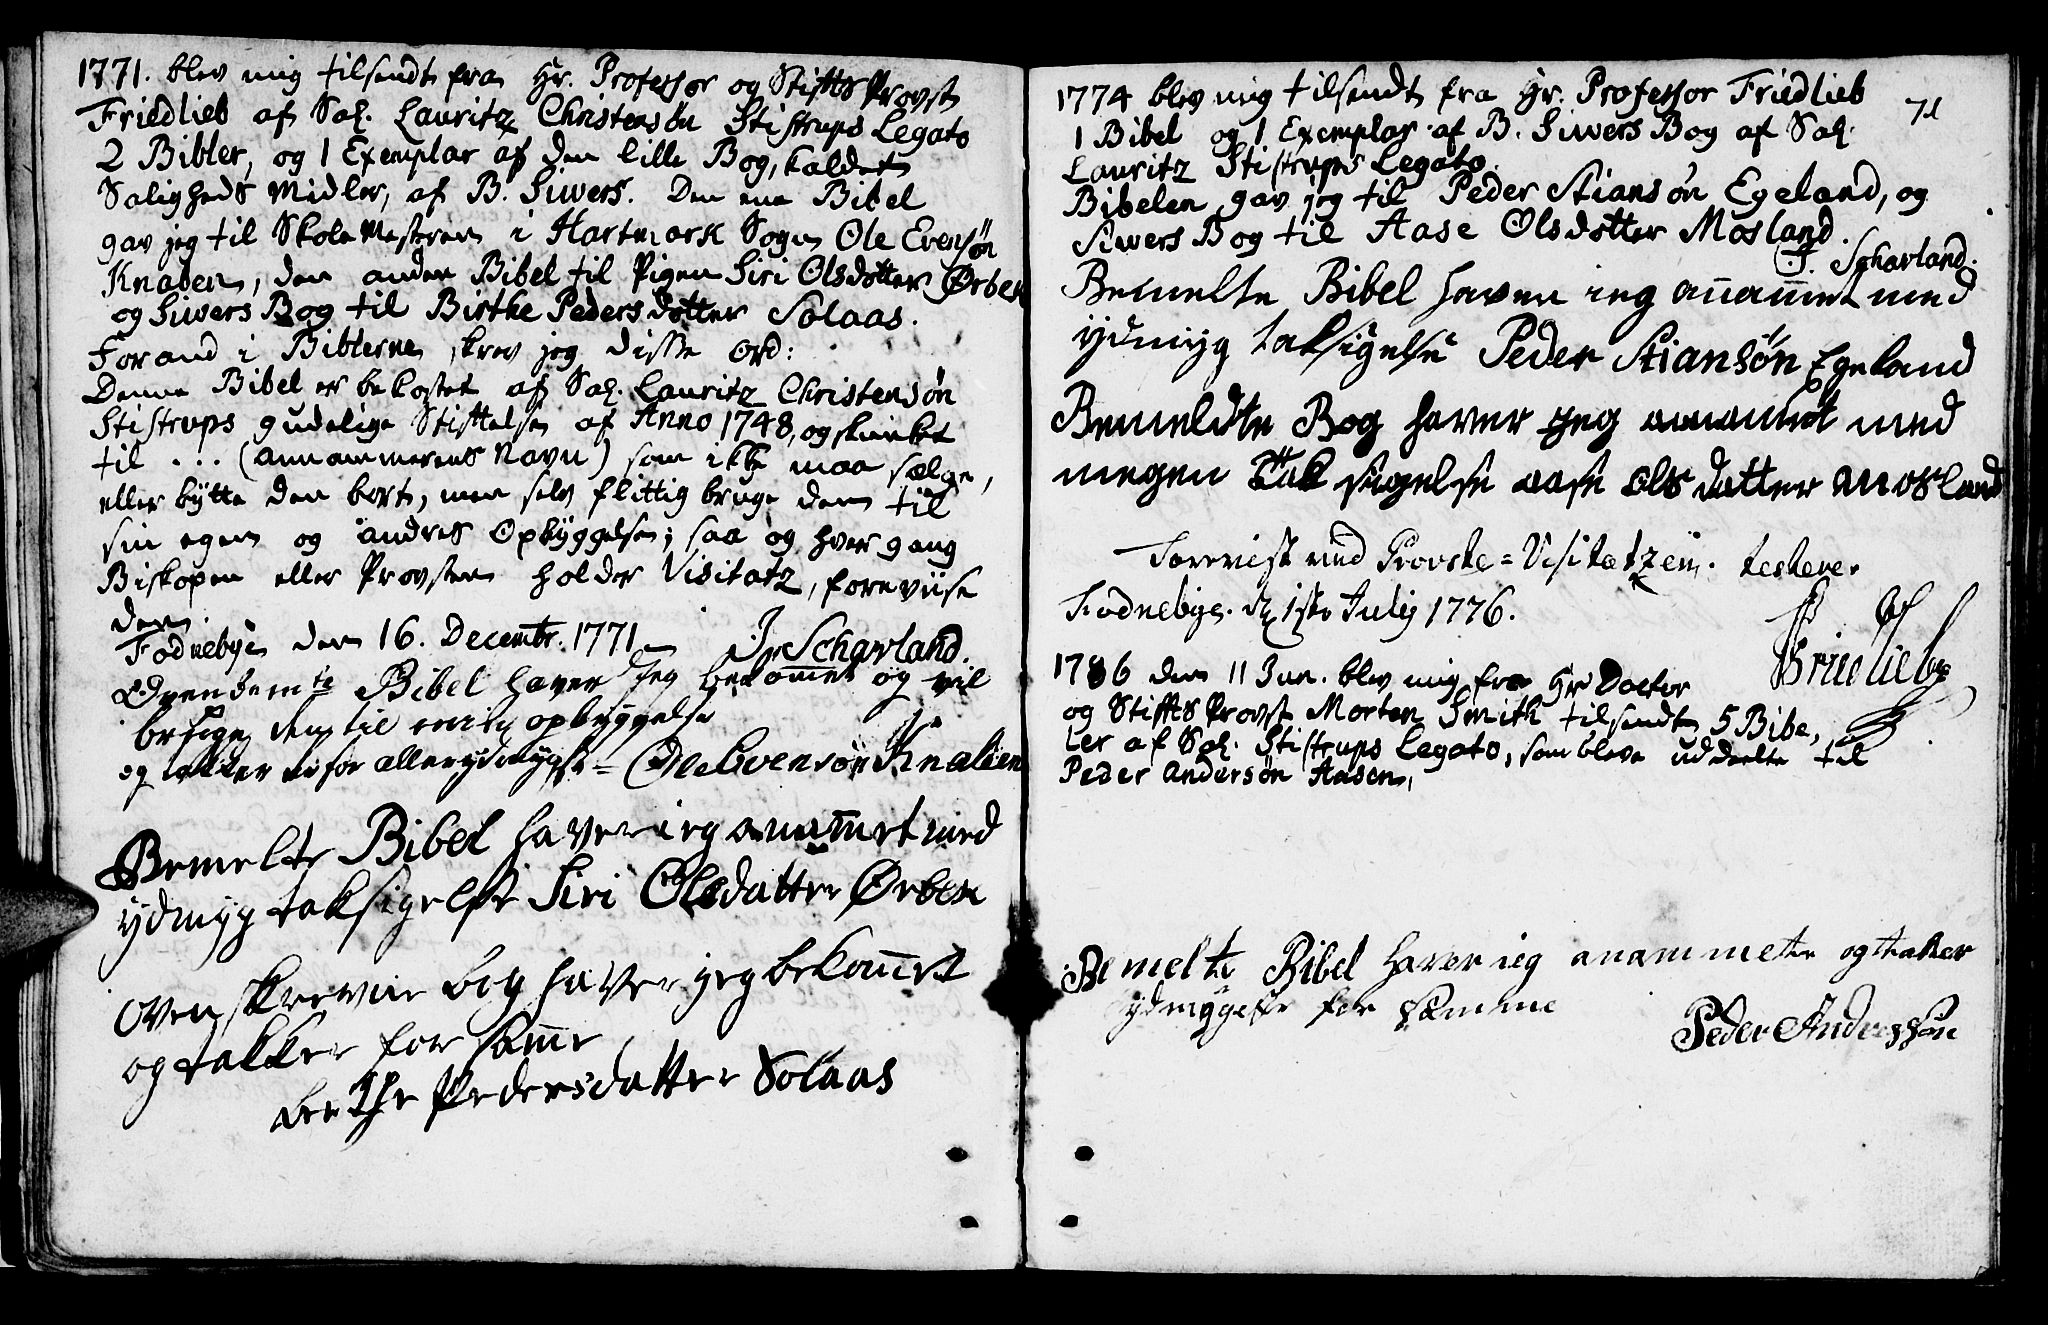 1771. blev mig tilsendt fra Hr. Professor og Stifts Provst
Friedlieb af Sal. Lauritz Christensøn Stistrups Legato
2 Bibler, og 1 Exemplar af den lille Bog, kaldet
Saligheds Midler, af B. Siwers. Den ene Bibel
gav jeg til Skole Mesteren i Hartmark Sogn Ole Evensøn
Knaben, den anden Bibel til Pigen Siri Olsdotter Ørben
og Siwers Bog til Birthe Pedersdotter Solaas.
Forand i Biblerne skrev jeg disse Ord:
Denne Bibel er bekostet af Sal. Lauritz Christensøn
Stistrups gudelige Stiftelse af Anno 1748, og skienket
til ... (annammerens Navn) som ikke maa sælge,
eller bytte den bort, men selv flittig bruge den til
sin egen og andres Opbyggelse; saa og hver gang
Biskopen eller Provsten holder Visitatz, foreviise
den.
Fodnebye den 16. Decembr. 1771 J. Scharland.
Ovenbemte Bibel haver Jeg bekomet og vil
bruge den til min opbyggelse
og takker derfor allerydmygst = Ole Evensøn Knaben
Bemelte Bibel haver ieg anammet med
ydmyg taksigelse Siri Olsdatter Ørben
Oven skrevne bog haver jeg bekomet
og takker for same
berthe Pedersdatter Solaas
71
1774 blev mig tilsendt fra Hr. Professor Friedlieb
1 Bibel og 1 Exemplar af B. Siwers Bog af Sal.
Lauritz Stistrups Legato.
Bibelen gav jeg til Peder Stiansøn Egeland, og
Siwers Bog til Aase Olsdotter Mosland.
J. Scharland.
Bemelte Bibel haver ieg anamet med
ydmyg taksigelse Peder Stiansøn Egeland
Bemeldte Bog haver jeg anamet med
megen Tak sigelse aase olsdatter Mosland
Foreviist ved Provste=Visitatzen. testerer
Fodnebye. d. 1ste Julij 1776.
1786 den 11 Jun. blev mig fra Hr Doctor
og Stifts Provst Morten Smith tilsendt 5 Bibe,
ler af Sal. Stistrups Legato, som bleve uddeelte til
Peder Andersøn Aasen,
Bemelte Bibel haver ieg anammete og takker
ydmygeste for samme
Peder Andersøn